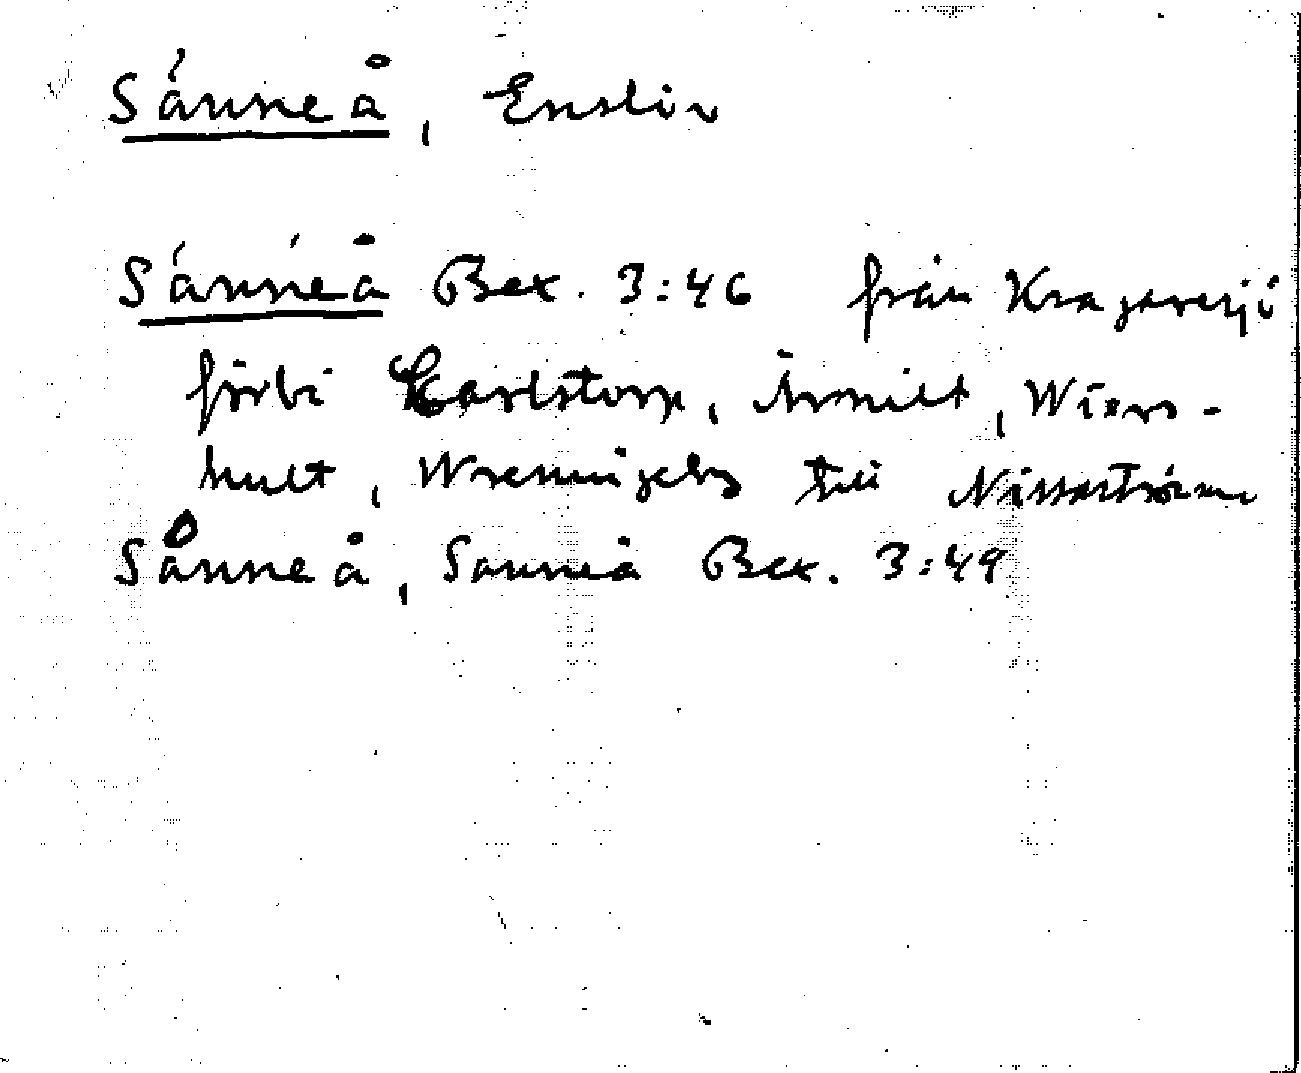 Sånneå, Enslöv
Sánnéå Bex. 3:46 från Kragaresjö
förbi Carlstorp, Årnilt, Wiers-
hult, Wrenninge till Nissaström
Sånneå, Sanneå Bex. 3:49